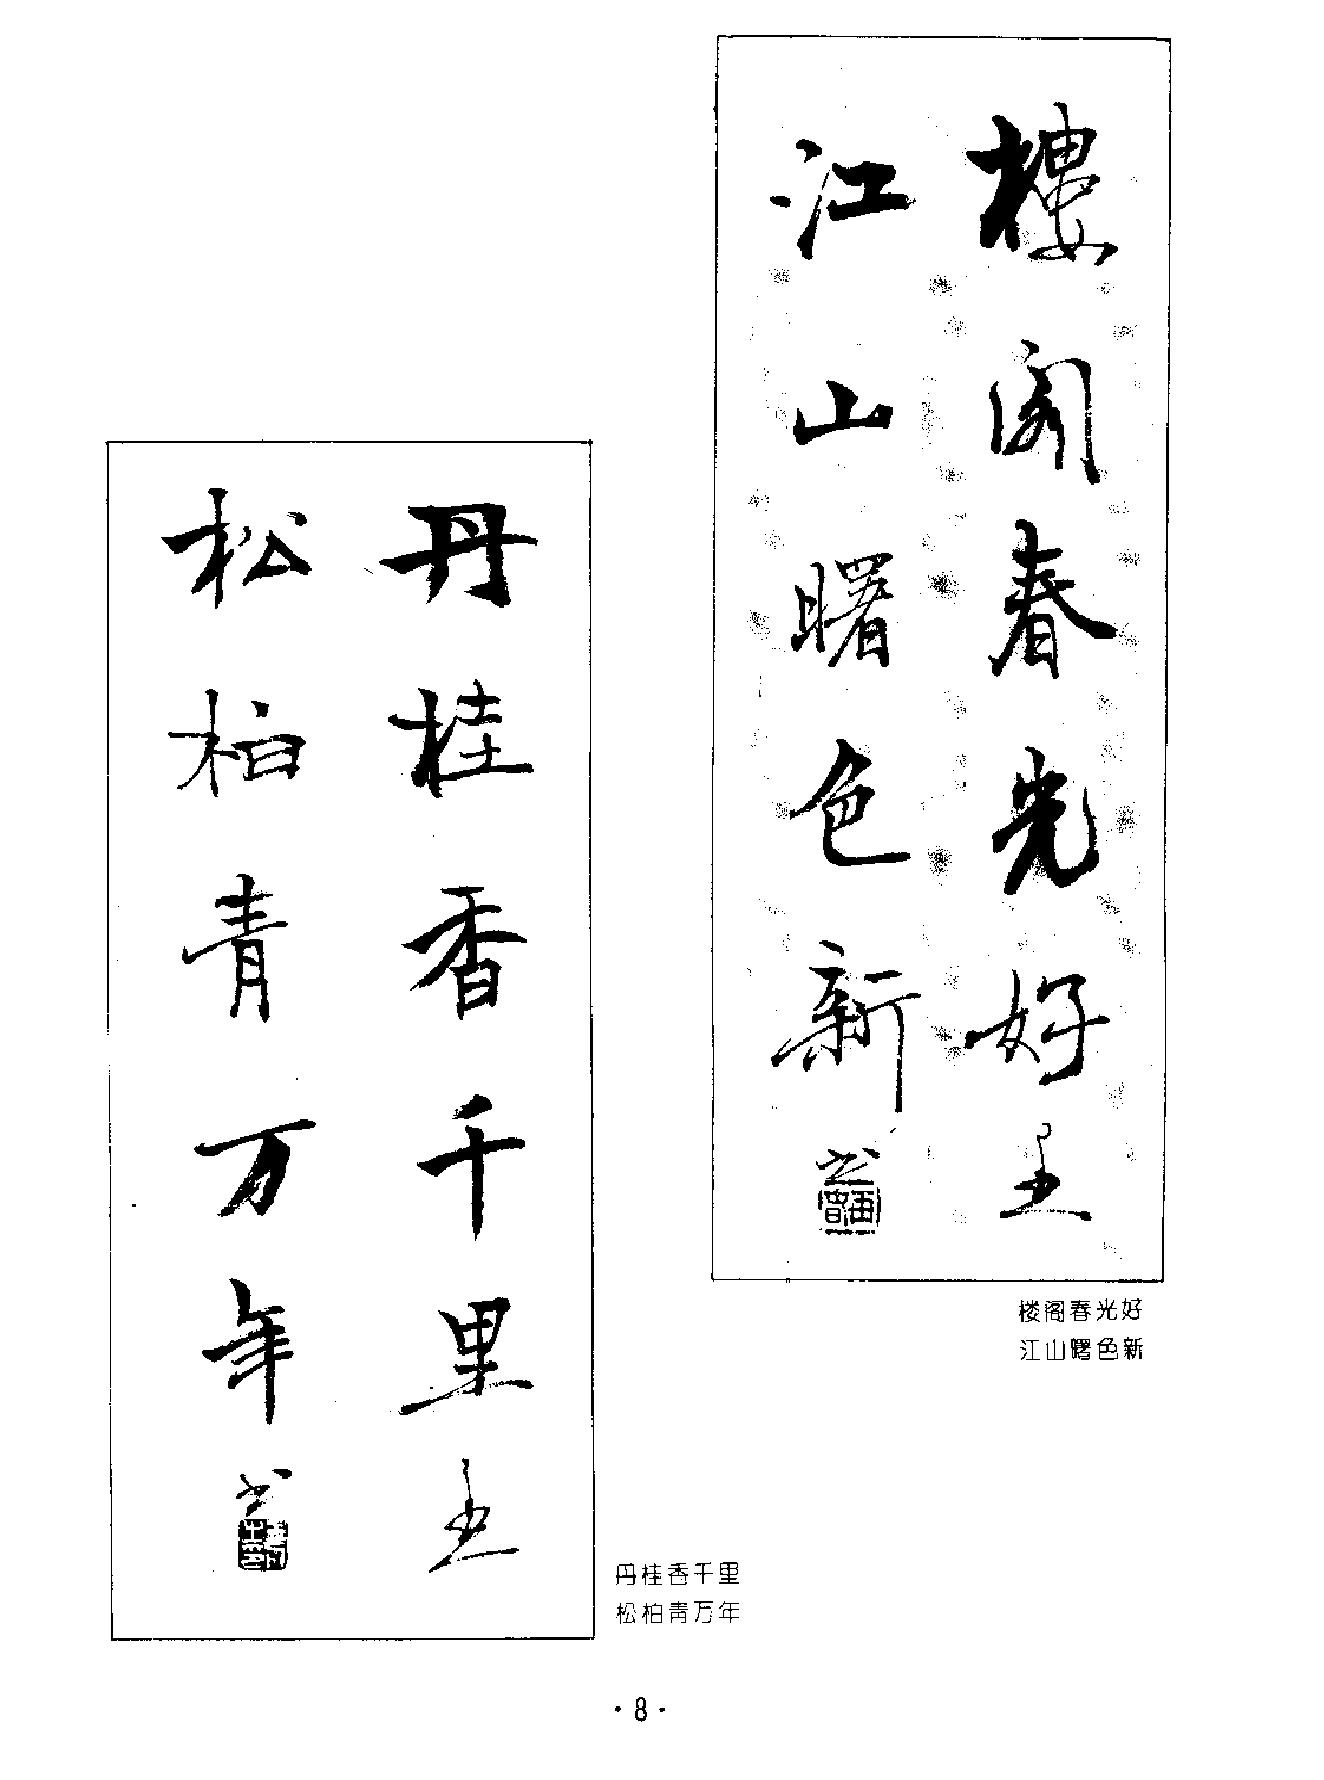 樓阁春光好
江山曙色新
楼阁春光好
江山曙色新
丹桂香千里
松柏青万年
丹桂香千里
松柏青万年
·8·